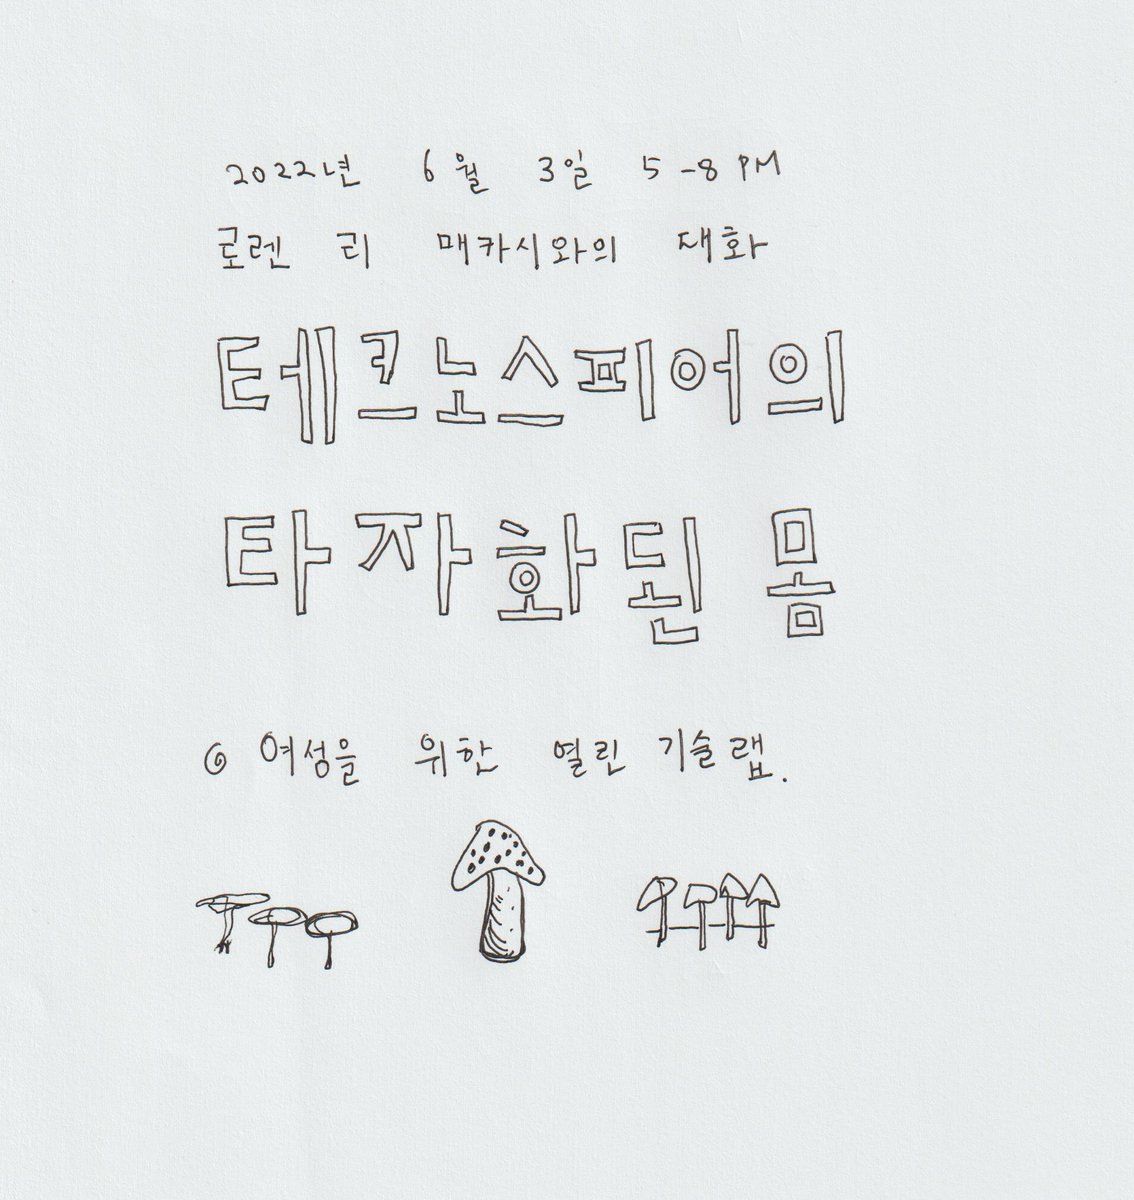 2022년 6월 3일 5-8 PM
로렌 리 매카시와의 대화
테크노스피어의
타자화된 몸
@ 여성을 위한 열린 기술랩.